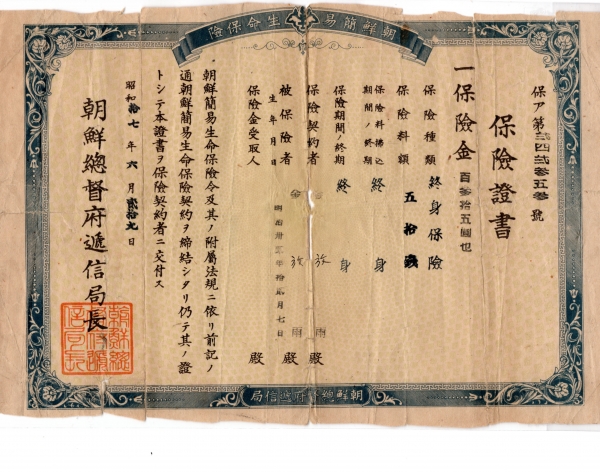 朝鮮簡易生命保險
保ア第貳四貳參五參號
保險證書
一保險金百參拾五圓也
保險種類 終身保險
保險料額 五拾錢
保險料拂込期間ノ終期 終身
保險期間ノ終期 終身
保險契約者 金 放雨殿
被保險者 金 放雨殿
生年月日 明治卅年拾月七日
保險金受取人 殿
朝鮮簡易生命保險令及其ノ附屬法規ニ依リ前記ノ
通朝鮮簡易生命保險契約ヲ締結シタリ仍テ其ノ證
トシテ本證書ヲ保險契約者ニ交付ス
昭和拾七年六月貳拾九日
朝鮮總督府遞信局長
朝鮮總督府遞信局